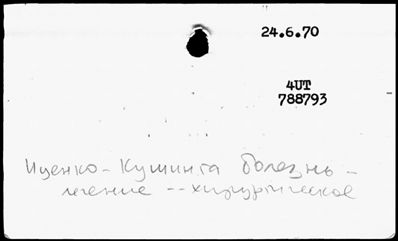 24.6.70
4UT
788793
Иценко-Кушинга болезнь -
лечение -- хирургическое